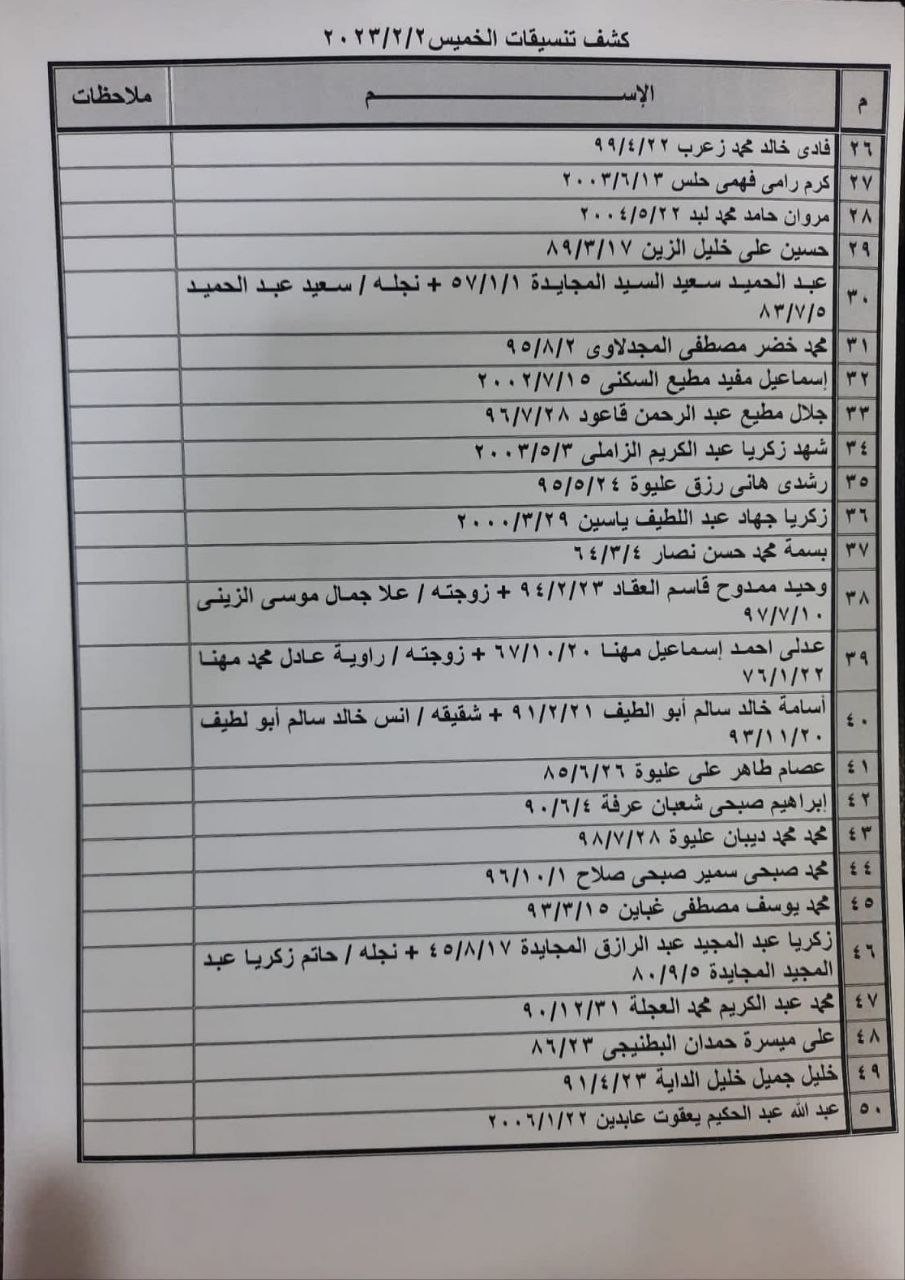 كشف تنسيقات الخميس ٢٠٢٣/٢/٢
م الإســـــــــــم ملاحظات
٢٦ فادى خالد محمد زعرب ٩٩/٤/٢٢
٢٧ كرم رامى فهمى حلس ٢٠٠٣/٦/١٣
٢٨ مروان حامد محمد لبد ٢٠٠٤/٥/٢٢
٢٩ حسين على خليل الزين ٨٩/٣/١٧
٣٠ عبد الحميد سعيد السيد المجايدة ٥٧/١/١ + نجله / سعيد عبد الحميد
٨٣/٧/٥
٣١ محمد خضر مصطفى المجدلاوى ٩٥/٨/٢
٣٢ إسماعيل مفيد مطيع السكنى ٢٠٠٢/٧/١٥
٣٣ جلال مطيع عبد الرحمن قاعود ٩٦/٧/٢٨
٣٤ شهد زكريا عبد الكريم الزاملى ٢٠٠٣/٥/٣
٣٥ رشدى هانى رزق عليوة ٩٥/٥/٢٤
٣٦ زكريا جهاد عبد اللطيف ياسين ٢٠٠٠/٣/٢٩
٣٧ بسمة محمد حسن نصار ٦٤/٣/٤
٣٨ وحيد ممدوح قاسم العقاد ٩٤/٢/٢٣ + زوجته / علا جمال موسى الزينى
٩٧/٧/١٠
٣٩ عدلى احمد إسماعيل مهنا ٦٧/١٠/٢٠ + زوجته / راوية عادل محمد مهنا
٧٦/١/٢٢
٤٠ أسامة خالد سالم أبو الطيف ٩١/٢/٢١ + شقيقه / انس خالد سالم أبو لطيف
٩٣/١١/٢٠
٤١ عصام طاهر على عليوة ٨٥/٦/٢٦
٤٢ إبراهيم صبحى شعبان عرفة ٩٠/٦/٤
٤٣ محمد محمد ديبان عليوة ٩٨/٧/٢٨
٤٤ محمد صبحى سمير صبحى صلاح ٩٦/١٠/١
٤٥ محمد يوسف مصطفى غباين ٩٣/٣/١٥
٤٦ زكريا عبد المجيد عبد الرازق المجايدة ٤٥/٨/١٧ + نجله / حاتم زكريا عبد
المجيد المجايدة ٨٠/٩/٥
٤٧ محمد عبد الكريم محمد العجلة ٩٠/١٢/٣١
٤٨ على ميسرة حمدان البطنيجى ٨٦/٢٣
٤٩ خليل جميل خليل الداية ٩١/٤/٢٣
٥٠ عبد الله عبد الحكيم يعقوت عابدين ٢٠٠٦/١/٢٢